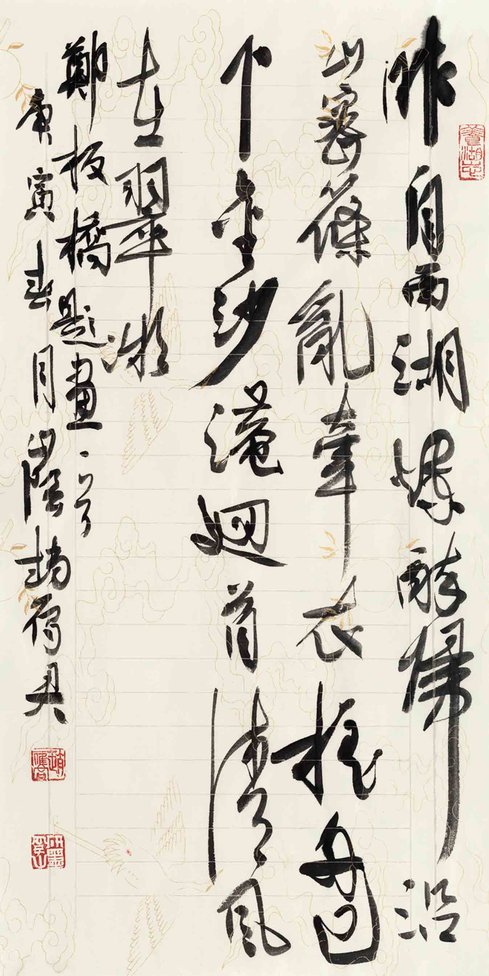 昨自西湖爛醉歸沿
山密篠亂牽衣搖舟已
下金沙港迴首清風
在翠微
鄭板橋題畫一首
庚寅春月趙